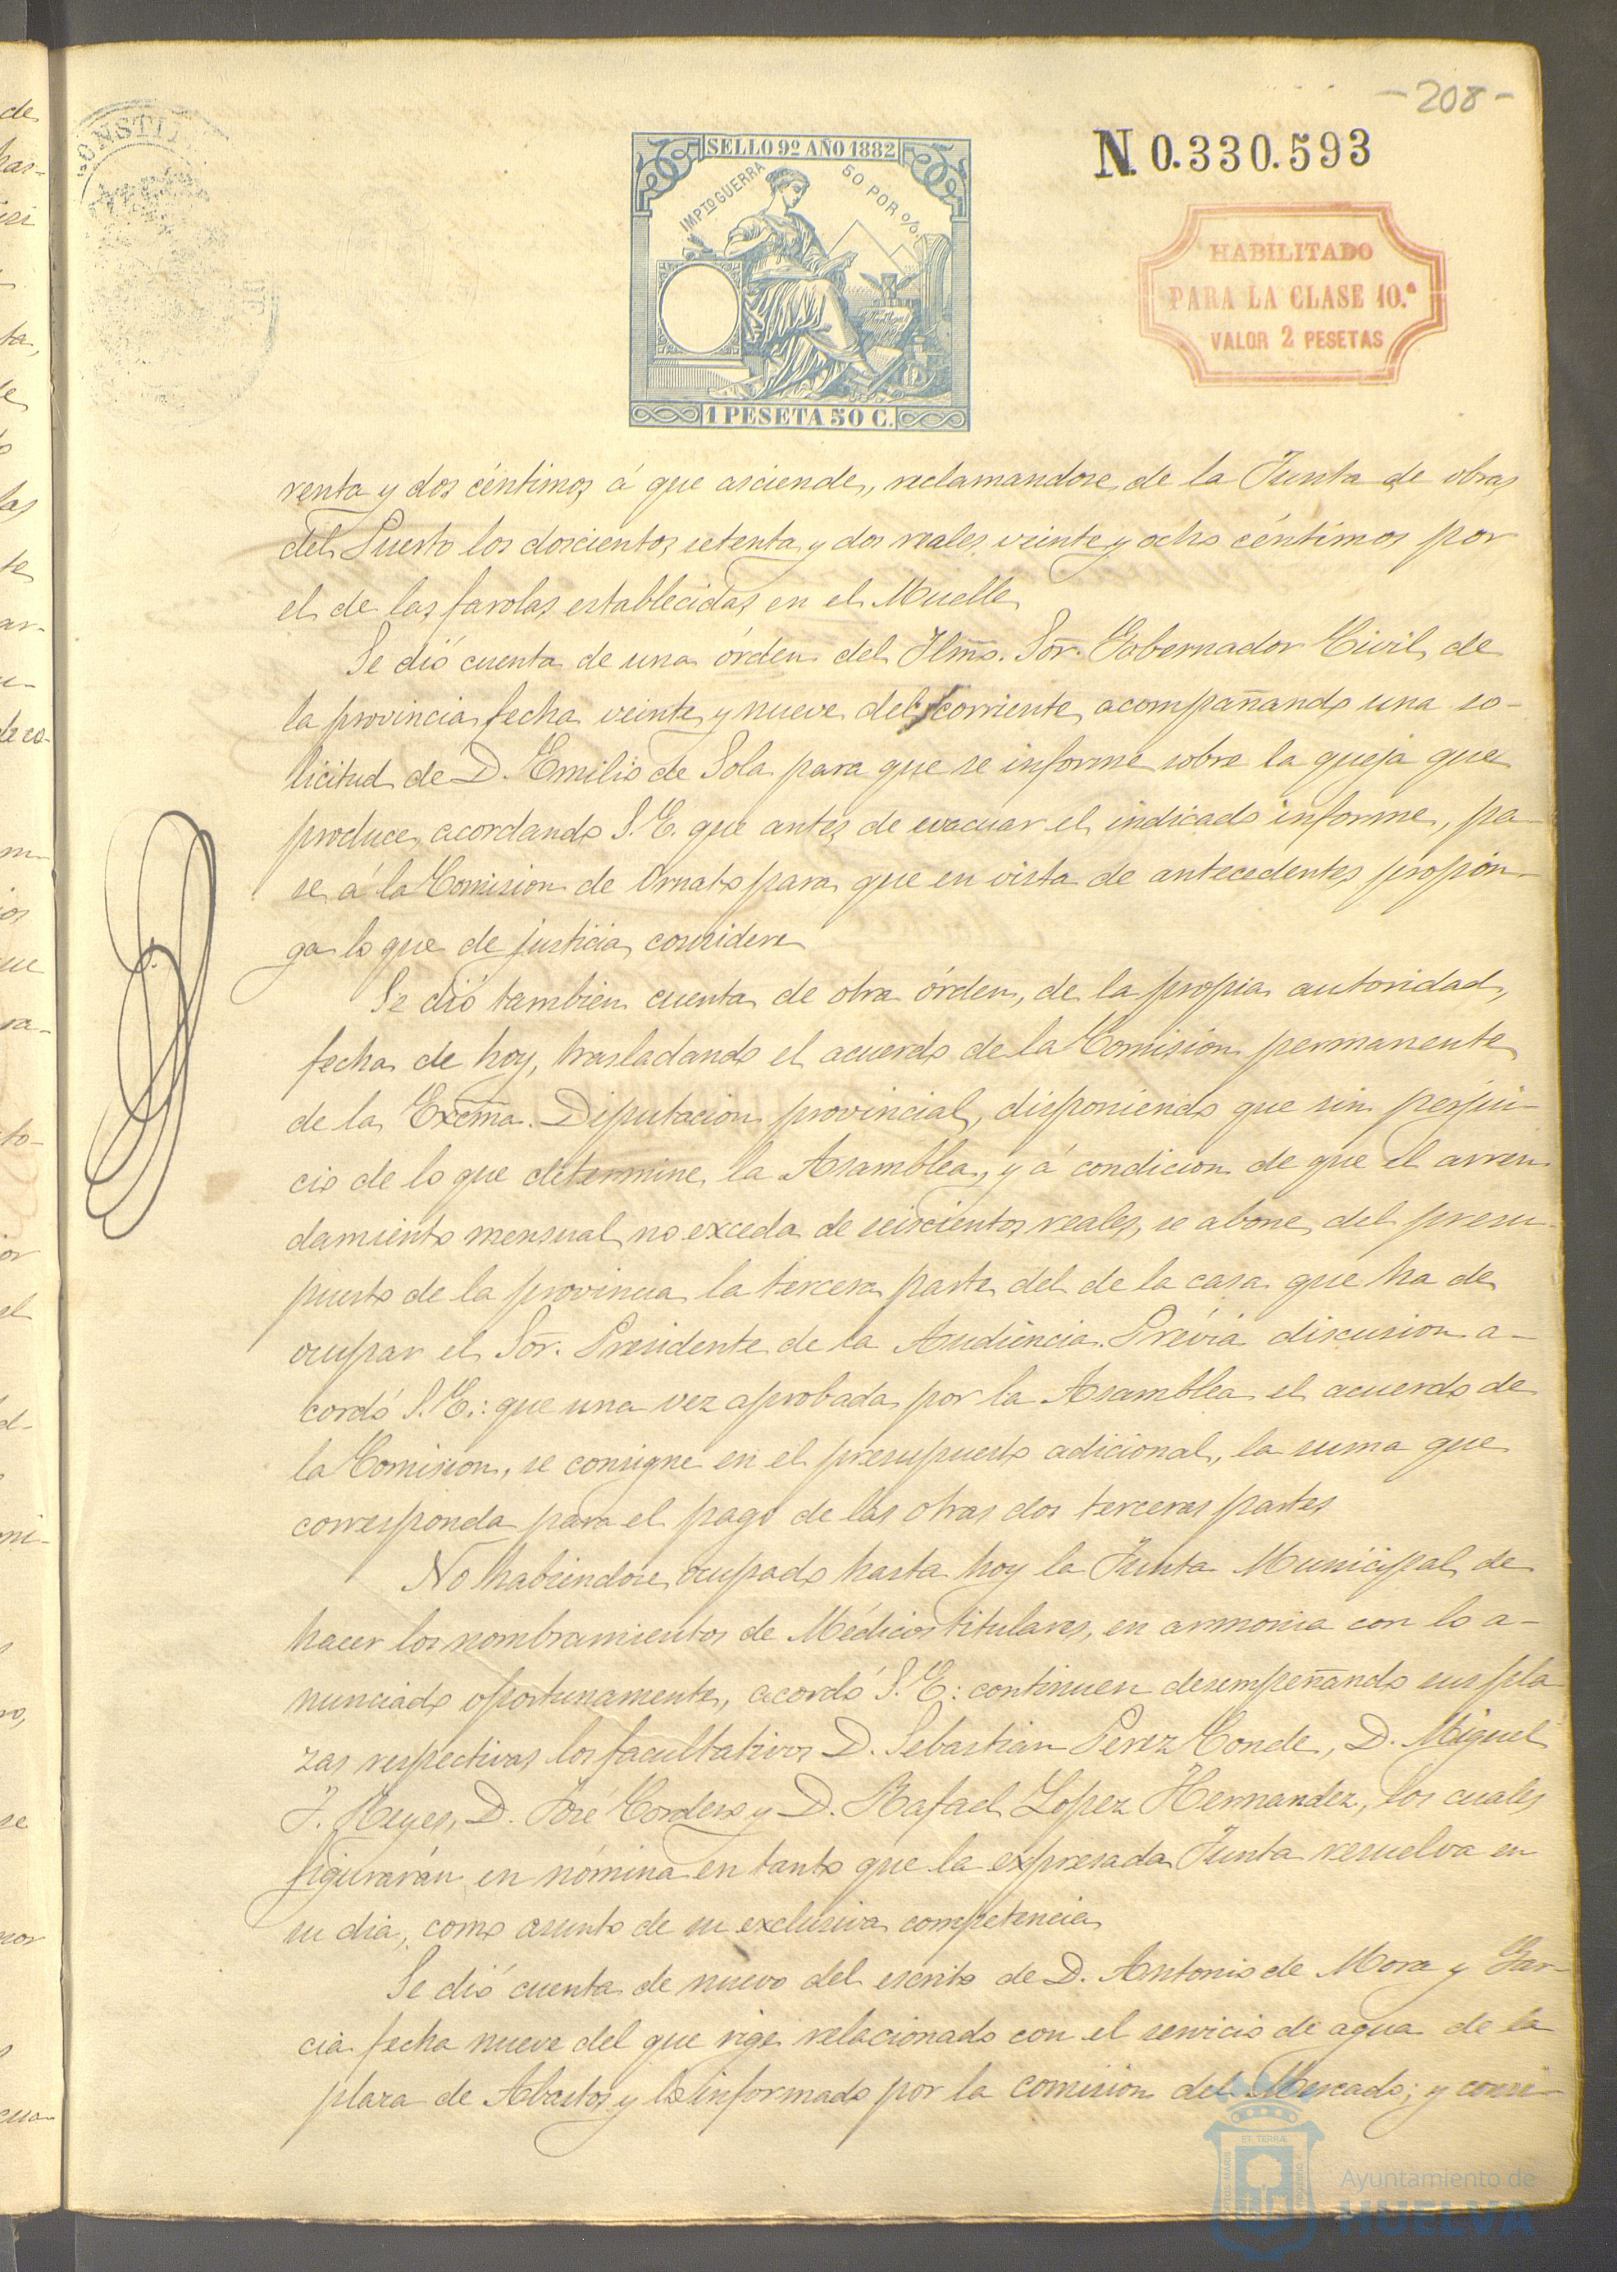 -208-
N. 0.330.593
SELLO 9º AÑO 1882
IMPTO GUERRA 50 POR %
1 PESETA 50 C.
HABILITADO
PARA LA CLASE 10.ª
VALOR 2 PESETAS
renta y dos céntimos á que asciende, reclamandose de la Junta de obras
del Puerto los doscientos setenta y dos reales veinte y ocho céntimos por
el de las farolas establecidas en el Muelle.
Se dió cuenta de una órden del Ilmo. Sor. Gobernador Civil de
la provincia fecha veinte y nueve del corriente, acompañando una so-
licitud de D. Emilio de Sola para que se informe sobre la queja que
produce, acordando S.E. que antes de evacuar el indicado informe, pa-
se á la Comision de Ornato para que en vista de antecedentes propon-
ga lo que de justicia considere.
Se dió tambien cuenta de otra órden, de la propia autoridad,
fecha de hoy, trasladando el acuerdo de la Comisión permanente
de la Excma. Diputacion provincial, disponiendo que sin perjui-
cio de lo que determine la Asamblea, y á condicion de que el arren-
damiento mensual no exceda de seiscientos reales, se abone del presu-
puesto de la provincia la tercera parte del de la casa que ha de
ocupar el Sor. Presidente de la Audiencia. Prévia discusion a-
cordó S.E.: que una vez aprobada por la Asamblea el acuerdo de
la Comision, se consigne en el presupuesto adicional, la suma que
corresponda para el pago de las otras dos terceras partes.
No habiendose ocupado hasta hoy la Junta Municipal de
hacer los nombramientos de Médicos titulares, en armonia con lo a-
nunciado oportunamente, acordó S.E: continuen desempeñando sus pla
zas respectivas los facultativos D. Sebastian Perez Conde, D. Miguel
J. Reyes, D. José Cordero y D. Rafael Lopez Hernandez, los cuales
figurarán en nómina en tanto que la expresada Junta resuelva en
su dia, como asunto de su exclusiva competencia.
Se dió cuenta de nuevo del escrito de D. Antonio de Mora y Gar-
cia fecha nueve del que rige relacionado con el servicio de agua de la
plaza de Abastos y lo informado por la comision del Mercado; y consi-
Ayuntamiento de
HUELVA